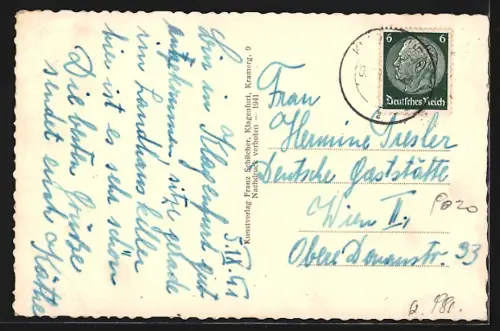 5.IX.41
Bin in Klagenfurt gut
angekommen, sitze gerade
im Landhauskeller
hier ist es sehr schön
Die besten Grüße
sendet euch
Kunstverlag Franz Schilcher, Klagenfurt, Kramerg. 9
Nachdruck verboten — 1941
6 6
Deutsches Reich
Frau
Hermine Tresler
Deutsche Gaststätte
Wien II.,
Obere Donaustr. 93